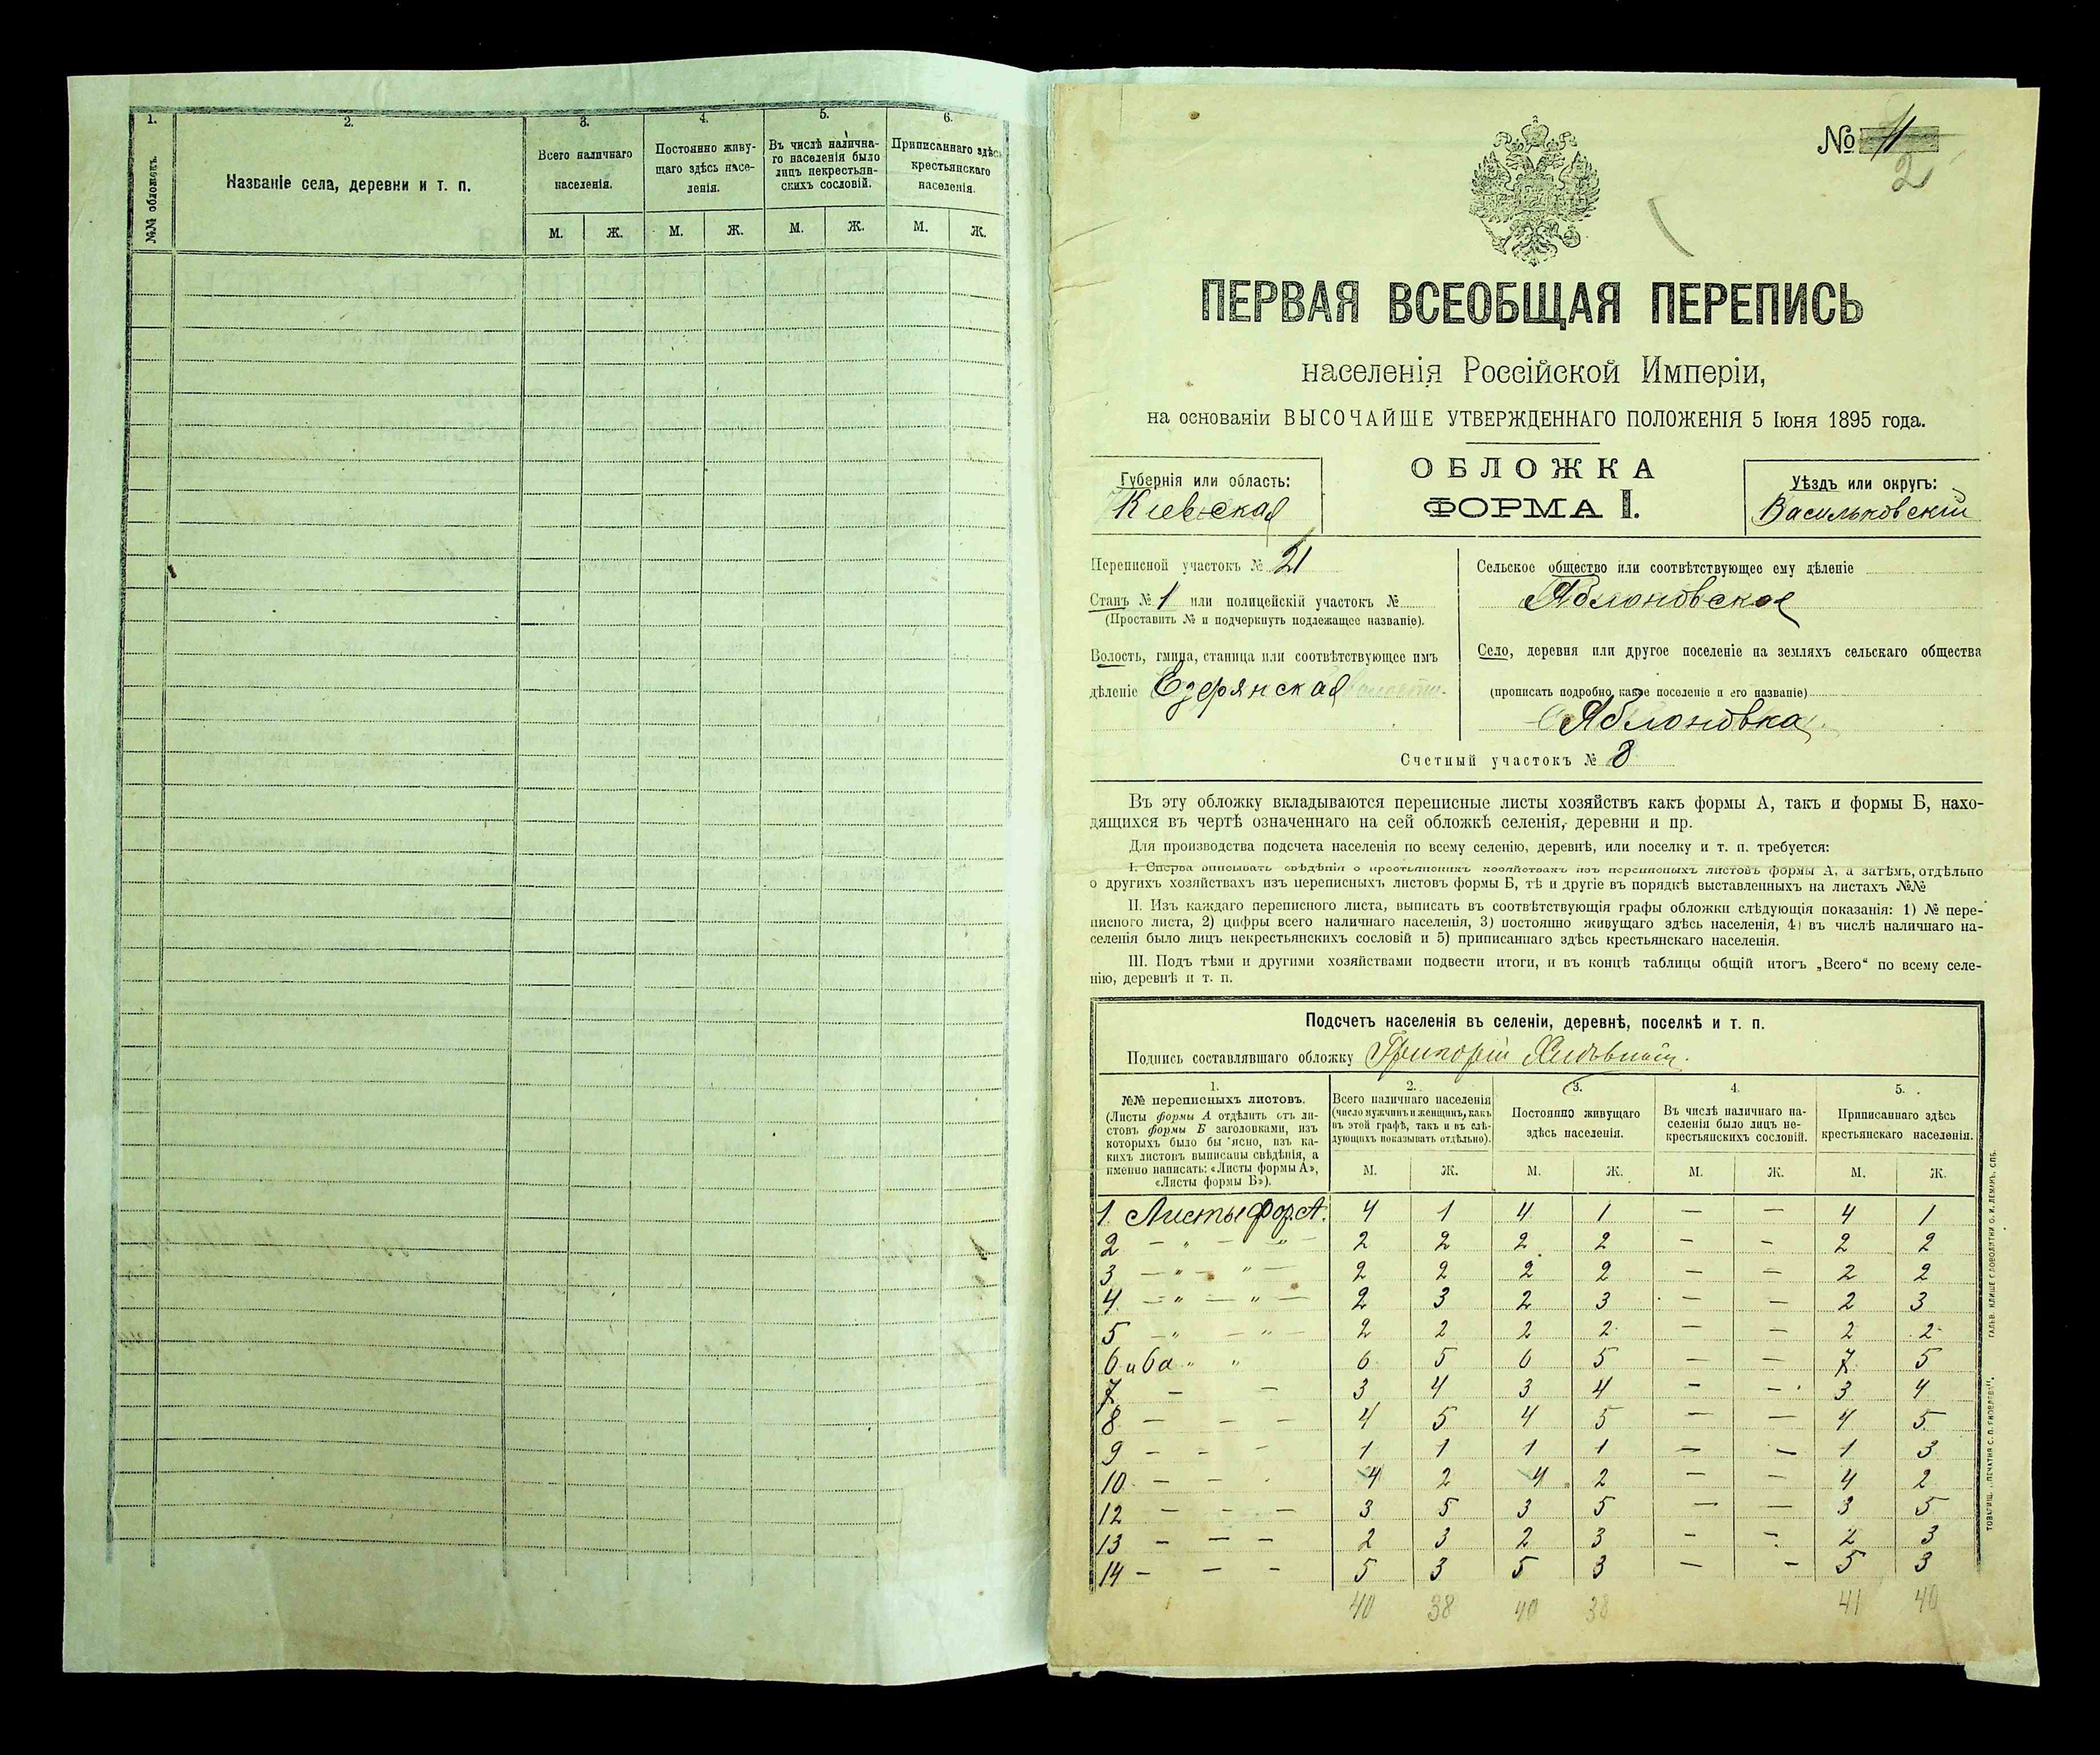 1.
№№ обложекъ.
2.
Названіе села, деревни и т. п.
3.
Всего наличнаго
населенія.
М. Ж.
4.
Постоянно живу-
щаго здѣсь насе-
ленія.
М. Ж.
5.
Въ числѣ налична-
го населенія было
лицъ некрестьян-
скихъ сословій.
М. Ж.
6.
Приписаннаго здѣсь
крестьянскаго
населенія.
М. Ж.
№
2
ПЕРВАЯ ВСЕОБЩАЯ ПЕРЕПИСЬ
населенія Россійской Имперіи,
на основаніи ВЫСОЧАЙШЕ УТВЕРЖДЕННАГО ПОЛОЖЕНІЯ 5 Іюня 1895 года.
Губернія или область:
Кіевская
ОБЛОЖКА
ФОРМА I.
Уѣздъ или округъ:
Васильковскій
Переписной участокъ № 21
Станъ № 1 или полицейскій участокъ №
(Проставить № и подчеркнуть подлежащее названіе).
Волость, гмина, станица или соотвѣтствующее имъ
дѣленіе Езерянская
Сельское общество или соотвѣтствующее ему дѣленіе
Яблоновское
Село, деревня или другое поселеніе на земляхъ сельскаго общества
(прописать подробно, какое поселеніе и его названіе)
Яблоновка
Счетный участокъ № 8
Въ эту обложку вкладываются переписные листы хозяйствъ какъ формы А, такъ и формы Б, нахо-
дящихся въ чертѣ означеннаго на сей обложкѣ селенія, деревни и пр.
Для производства подсчета населенія по всему селенію, деревнѣ, или поселку и т. п. требуется:
I. Сперва выписывать свѣдѣнія о крестьянскихъ хозяйствахъ изъ переписныхъ листовъ формы А, а затѣмъ, отдѣльно
о другихъ хозяйствахъ изъ переписныхъ листовъ формы Б, тѣ и другіе въ порядкѣ выставленныхъ на листахъ №№
II. Изъ каждаго переписного листа, выписать въ соотвѣтствующія графы обложки слѣдующія показанія: 1) № пере-
писного листа, 2) цифры всего наличнаго населенія, 3) постоянно живущаго здѣсь населенія, 4) въ числѣ наличнаго на-
селенія было лицъ некрестьянскихъ сословій и 5) приписаннаго здѣсь крестьянскаго населенія.
III. Подъ тѣми и другими хозяйствами подвести итоги, и въ концѣ таблицы общій итогъ „Всего“ по всему селе-
нію, деревнѣ и т. п.
Подсчетъ населенія въ селеніи, деревнѣ, поселкѣ и т. п.
Подпись составлявшаго обложку Григорій
1.
№№ переписныхъ листовъ.
(Листы формы А отдѣлить отъ ли-
стовъ формы Б заголовками, изъ
которыхъ было бы ясно, изъ ка-
кихъ листовъ выписаны свѣдѣнія, а
именно написать: «Листы формы А»,
«Листы формы Б»).
2.
Всего наличнаго населенія
(число мужчинъ и женщинъ, какъ
въ этой графѣ, такъ и въ слѣ-
дующихъ показывать отдѣльно).
М. Ж.
3.
Постоянно живущаго
здѣсь населенія.
М. Ж.
4.
Въ числѣ наличнаго на-
селенія было лицъ не-
крестьянскихъ сословій.
М. Ж.
5.
Приписаннаго здѣсь
крестьянскаго населенія.
М. Ж.
1 Листы фор. А. 4 1 4 1 — — 4 1
2 — „ — „ — 2 2 2 2 — — 2 2
3 — „ — „ — 2 2 2 2 — — 2 2
4 — „ — „ — 2 3 2 3 — — 2 3
5 — „ — „ — 2 2 2 2 — — 2 2
6 и 6а „ „ 6 5 6 5 — — 7 5
7 — — 3 4 3 4 — — 3 4
8 — — — 4 5 4 5 — — 4 5
9 — — — 1 1 1 1 — — 1 3
10 — — — 4 2 4 2 — — 4 2
12 — — — 3 5 3 5 — — 3 5
13 — — — 2 3 2 3 — — 2 3
14 — — — 5 3 5 3 — — 5 3
40 38 40 38 41 40